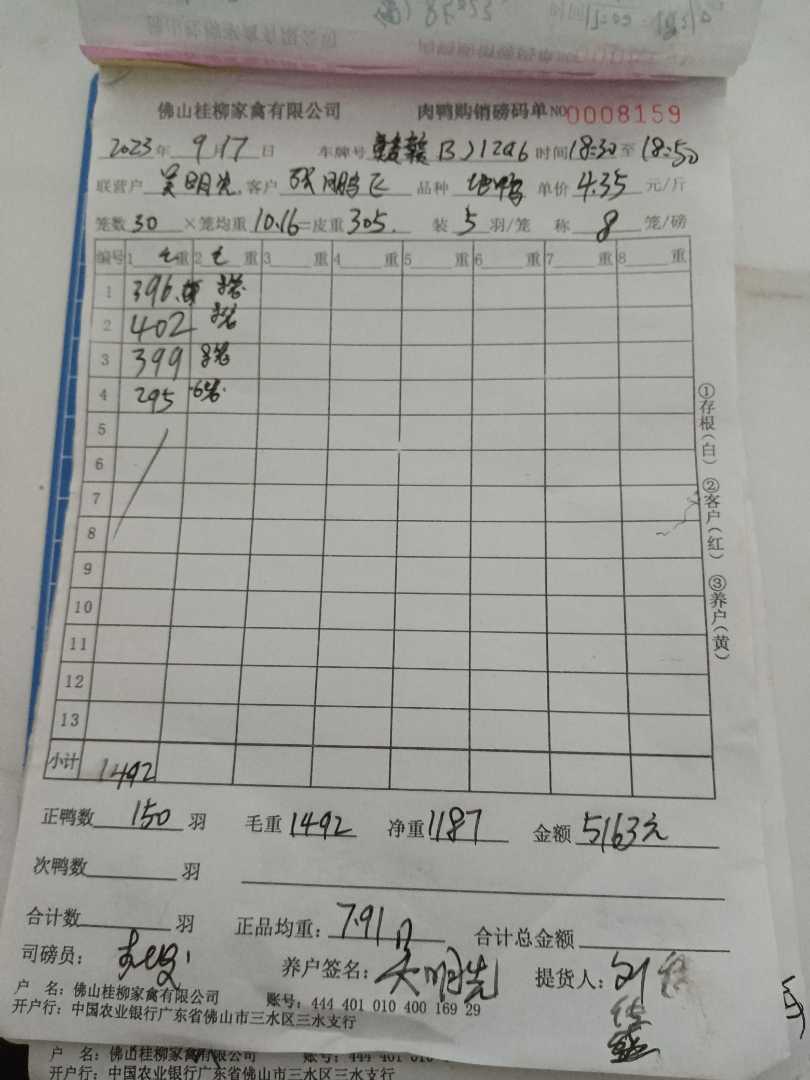 佛山桂柳家禽有限公司 肉鸭购销磅码单 NO 0008159
2023年 9月17日 车牌号 赣B 时间18:30至18:50
联营户 吴明先 客户 张鹏飞 品种 单价 4.35 元/斤
笼数 30 ×笼均重 10.16=皮重 305. 装 5 羽/笼 称 8 笼/磅
编号 1 毛重 2 毛重 3 重 4 重 5 重 6 重 7 重 8 重
1 396. 8笼
2 402 8笼
3 399 8笼
4 295 6笼
5
6
7
8
9
10
11
12
13
小计 1492
正鸭数 150 羽 毛重 1492 净重 1187 金额 5163元
次鸭数 羽
合计数 羽 正品均重: 7.91斤 合计总金额
司磅员: 养户签名: 吴明先 提货人: 刘
户 名: 佛山桂柳家禽有限公司 账号: 444 401 010 400 169 29
开户行: 中国农业银行广东省佛山市三水区三水支行
①存根(白) ②客户(红) ③养户(黄)
户 名: 佛山桂柳家禽有限公司 账号: 444 401 010
开户行: 中国农业银行广东省佛山市三水区三水支行